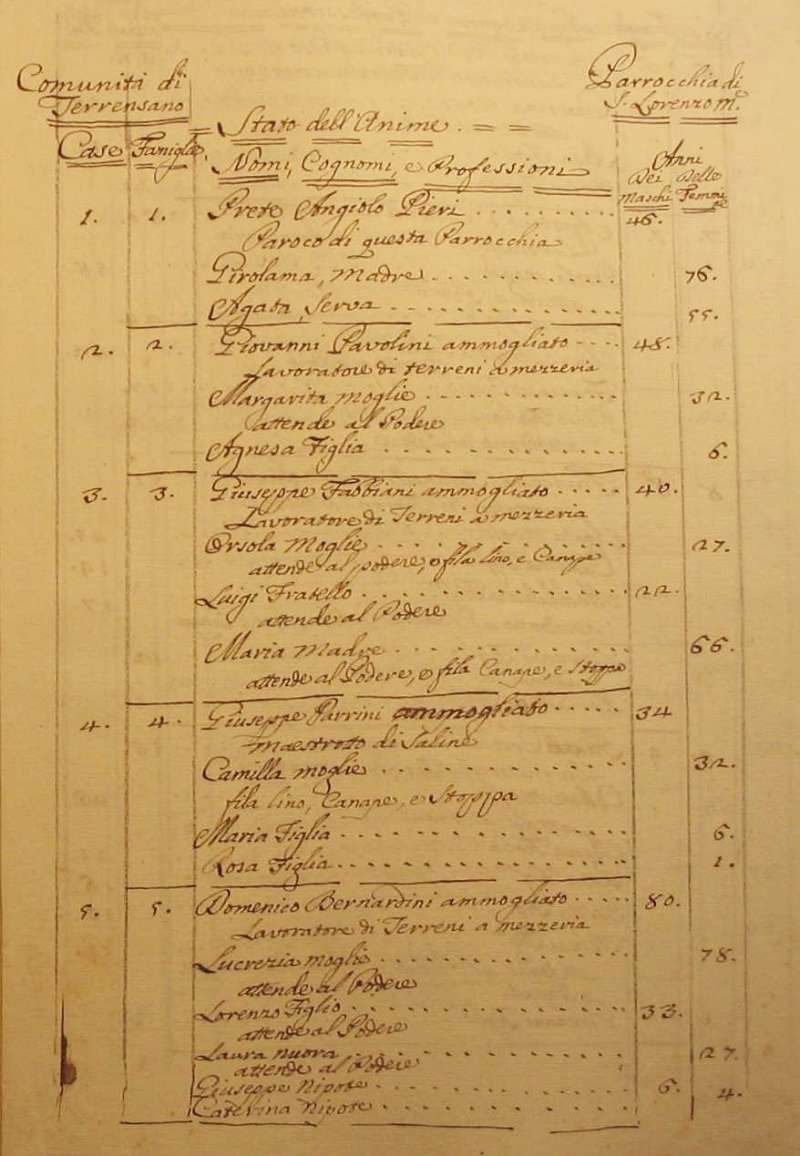 Comunità di Parrocchia di
Terrensano S. Lorenzo M.
Stato dell'Anime. = =
Case Famiglie Nomi, Cognomi, e Professioni Anni
Dei Delle
Maschi Femmi
1. 1. Prete Angiolo Pieri 46.
Paroco di questa Parrocchia
Girolama, Madre 76.
Agata, Serva 55.
2. 2. Giovanni Pavolini ammogliato 48.
Lavoratore di terreni a mezzeria
Margarita Moglie 32.
attende al Podere
Agnesa Figlia 6.
3. 3. Giuseppe Fabbiani ammogliato 40.
Lavoratore di Terreni a mezzeria
Orsola Moglie 27.
attende al podere, e fila lino, e Canape
Luigi Fratello 22.
attende al Podere
Maria Madre 66.
attende al Podere, e fila Canape, e Stoppa
4. 4. Giuseppe Parrini ammogliato 34
di Saline
Camilla moglie 32.
fila lino, Canape, e Stoppa
Maria Figlia 6.
Rosa Figlia 1.
5. 5. Domenico Bernardini ammogliato 80.
Lavoratore di Terreni a mezzeria
Lucrezia moglie 78.
attende al Podere
Lorenzo Figlio 33.
attende al Podere
Laura nuora 27.
attende al Podere
Giuseppe Nipote 6.
Caterina Nipote 4.